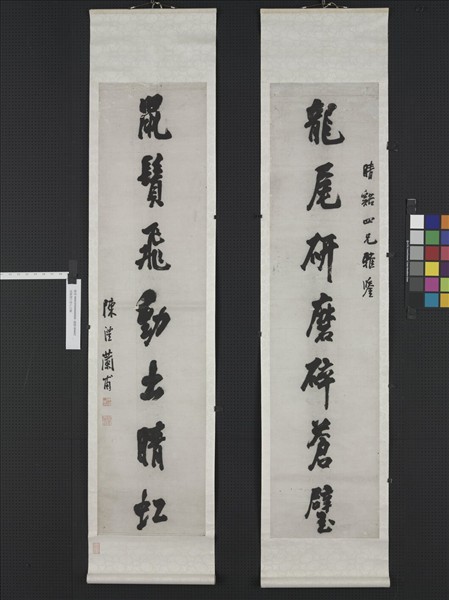 晴谿四兄雅鑒
龍尾研磨碎蒼璧
鼠鬚飛動出晴虹
陳澧蘭甫